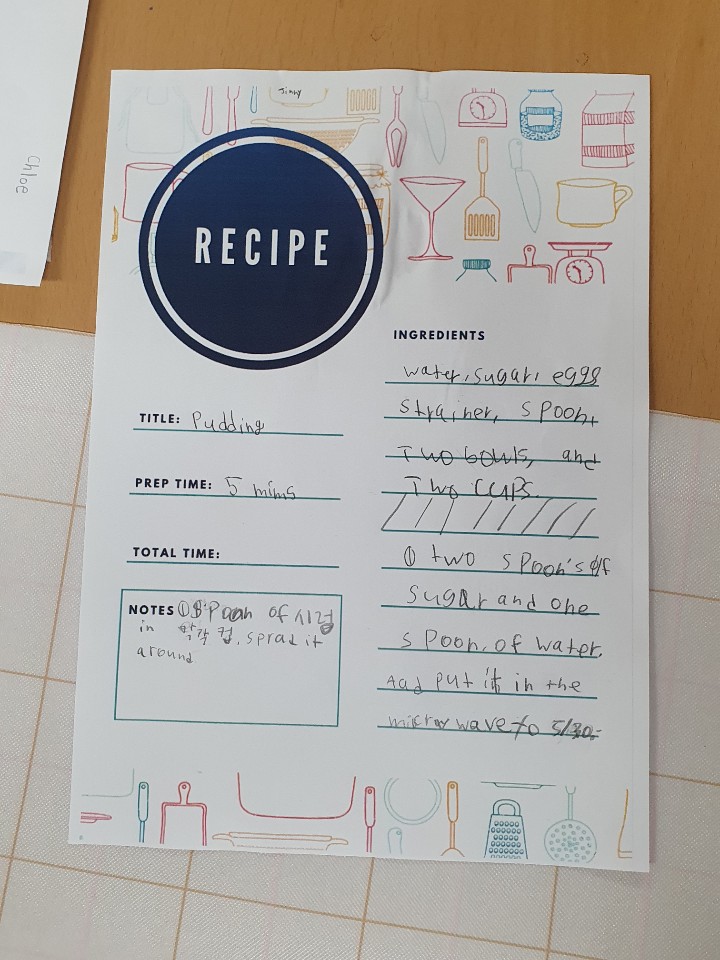 Jinny
Chloe
RECIPE
TITLE: Pudding
PREP TIME: 5 mims
TOTAL TIME:
NOTES ① SPoon of 시럽
in 각 컵, sprad it
around
INGREDIENTS
water, sugar, eggs
strainer, spoon,
Two bowls, and
Two cups.
① two spoon's of
sugar and one
spoon of water.
Aad put it in the
wave to